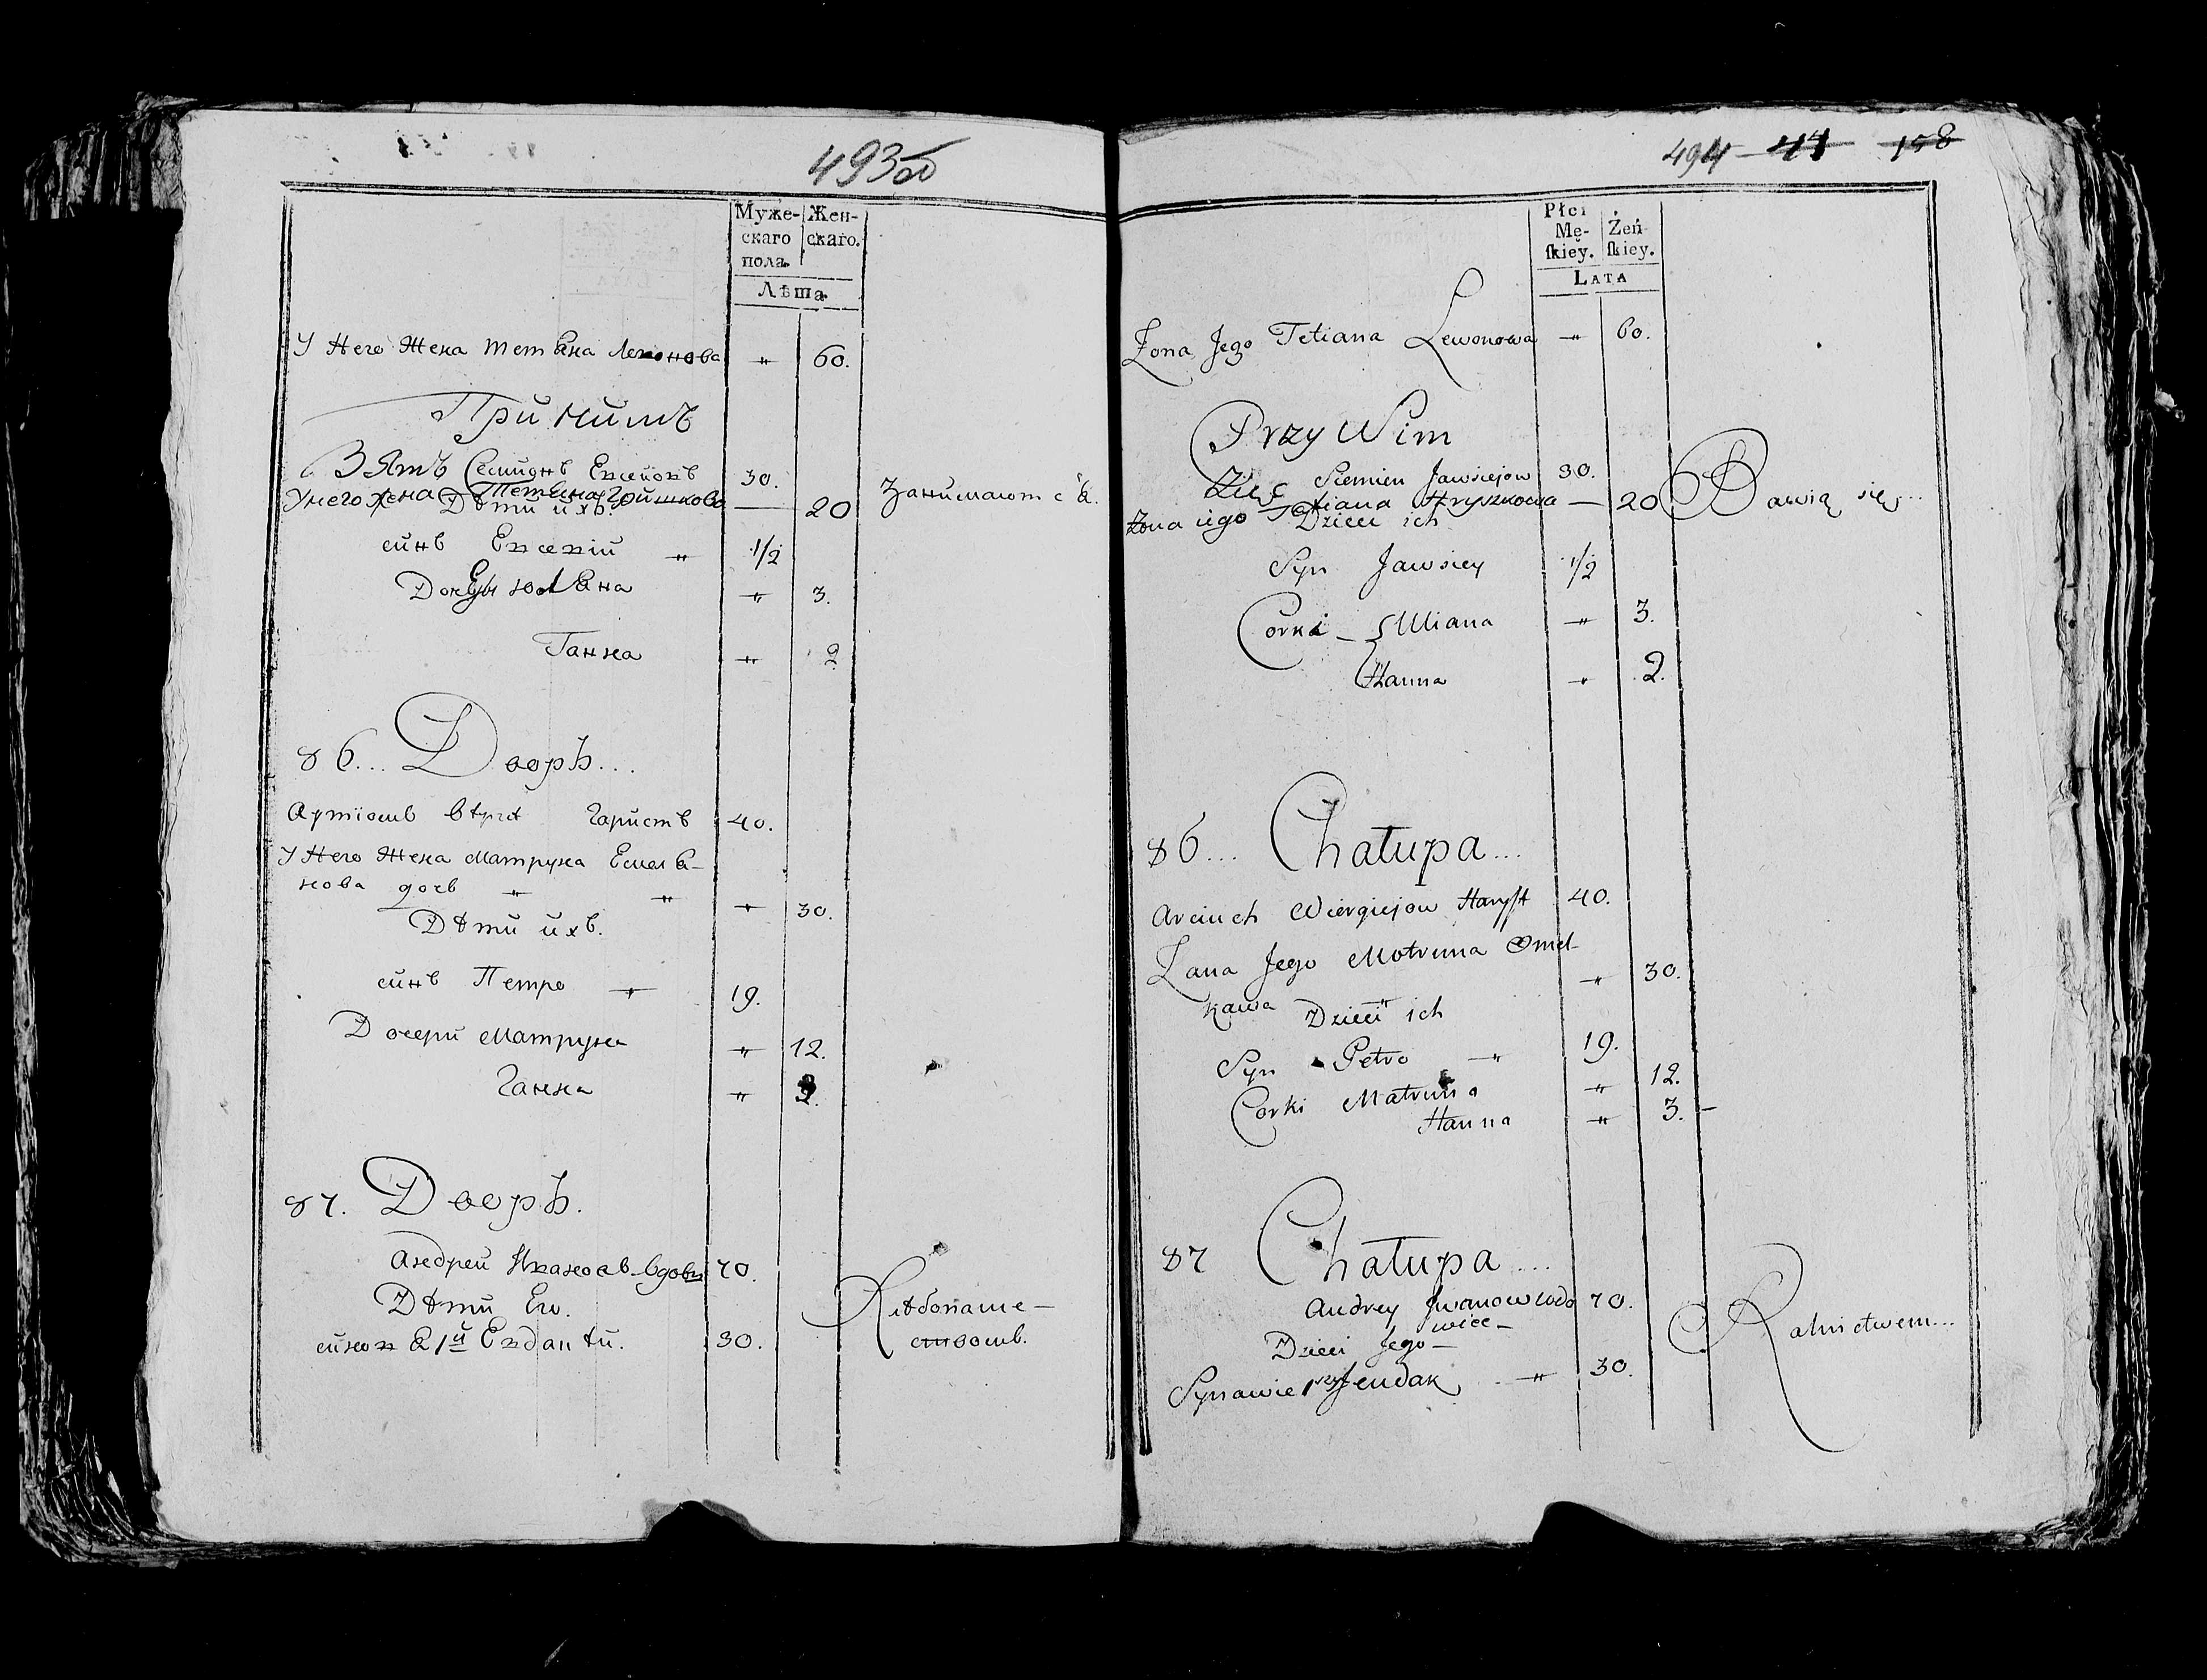 493об
Муже-
скаго
пола.
Жен-
скаго.
Лѣта.
У Него Жена Тетѣяна Левонова " 60.
При нимъ
Зятъ Семионъ Евсеіовъ 30.
У него жена Тетѣяна Гришкова — 20
Занимаютсѣя.
Дѣти ихъ.
синъ Евсевій " 1/2
Ганна " 2
86... Дворъ...
Гаристъ 40.
У Него Жена Матруна Емелѣя-
нова дочь " "
" 30.
Дѣти ихъ.
синъ Петро " 19.
Дочери Матруна " 12.
Ганна "
87. Дворъ.
Андрей Ивановъ вдовц 70.
Хлѣбопаше-
ствомъ.
Дѣти Ею.
30.
494 — 47 158
Płci
Mę-
skiey.
Żeń
skiey.
LATA
Żona Jego Tetiana Lewonowa " 60.
Przy Nim
Zięc Siemien Jawsiejow 30.
żona iego Tetiana Hryszkowa — 20
Bawią się...
Dzieci ich
Syn Jawsiey 1/2
Corki Uliana " 3.
Hanna " 2.
86... Chatupa...
Arciuch Wiergiejow Haryst 40.
Żana Jego Motruna Omel-
kawa " 30.
Dzieci ich
Syn Petro " 19.
Corki Matruna " 12.
Hanna " 3. —
87 Chatupa...
Andrey Jwanow wdo 70.
wiec —
Dzieci Jego —
Rolnictwem...
Synawie 1szy Jeudak " 30.